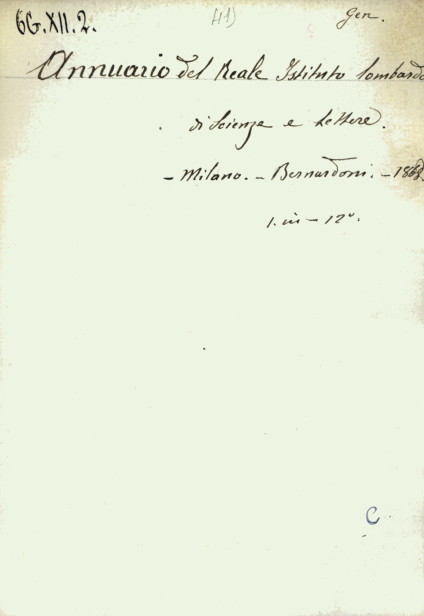 6G.XII.2. (41) Gen.
Annuario del Reale Istituto lombardo
di Scienze e Lettere.
- Milano. - Bernardoni. - 1868.
1. in - 12º.
C